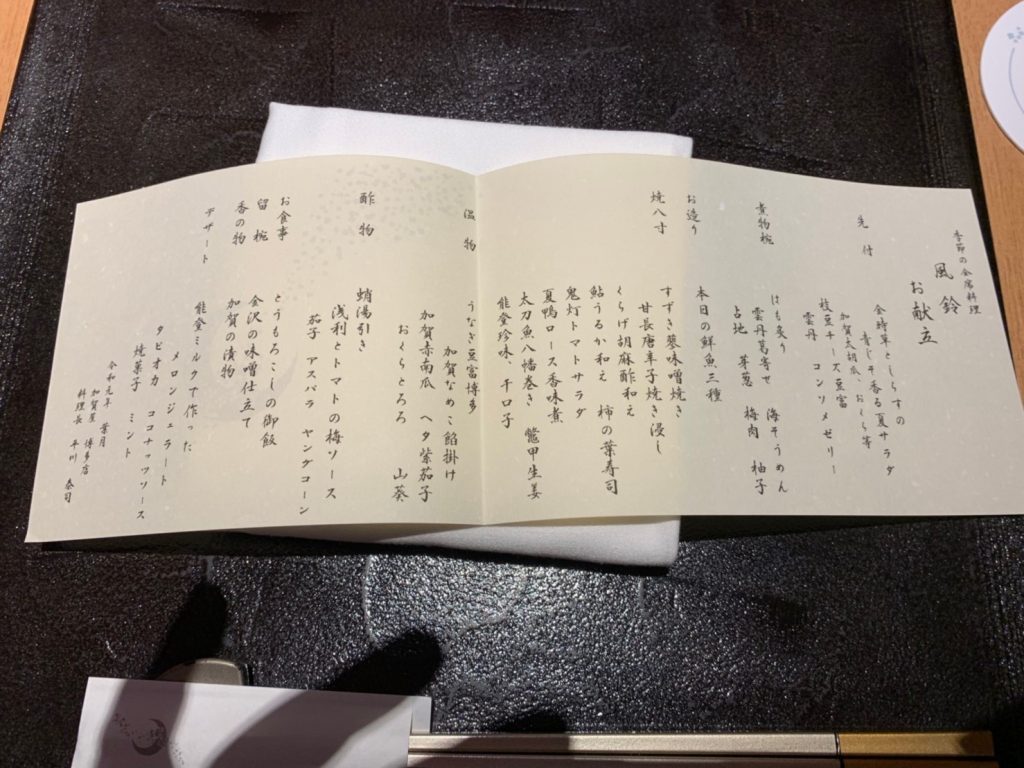 季節の会席料理
風鈴
お献立
先付
金時草としらすの
青じそ香る夏サラダ
加賀太胡瓜、おくら等
枝豆チーズ豆富
雲丹 コンソメゼリー
煮物椀
はも炙り 海そうめん
雲丹葛寄せ
占地 芽葱 梅肉 柚子
お造り
本日の鮮魚三種
焼八寸
すずき蓼味噌焼き
甘長唐辛子焼き浸し
くらげ胡麻酢和え
鮎うるか和え 柿の葉寿司
鬼灯トマトサラダ
夏鴨ロース香味煮
太刀魚八幡巻き 鼈甲生姜
能登珍味、干口子
温物
うなぎ豆富博多
加賀なめこ餡掛け
加賀赤南瓜 ヘタ紫茄子
おくらとろろ 山葵
酢物
蛸湯引き
浅利とトマトの梅ソース
茄子 アスパラ ヤングコーン
お食事
とうもろこしの御飯
留椀
金沢の味噌仕立て
香の物
加賀の漬物
デザート
能登ミルクで作った
メロンジェラート
タピオカ ココナッツソース
焼菓子 ミント
令和元年 葉月
加賀屋 博多店
料理長 平川 泰司